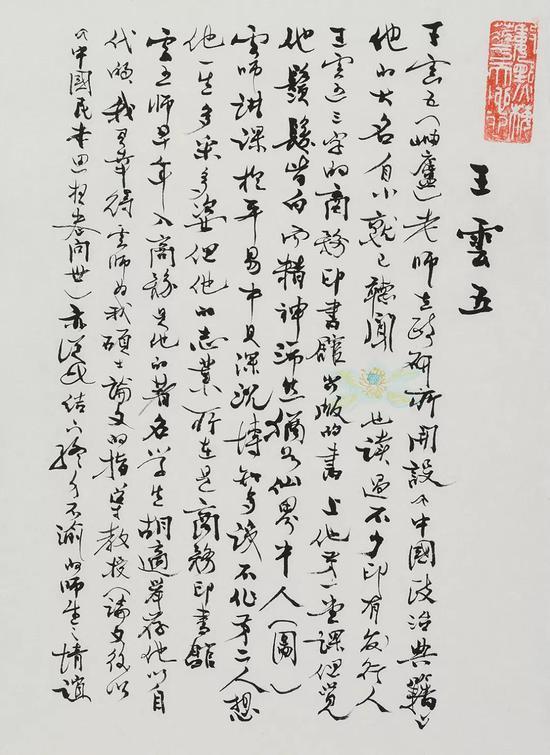 王雲五
王雲五(岫廬)老師在政研所開設《中國政治典籍》
他的大名自小就已聽聞 也读過不少印有發行人
王雲五三字的商務印書館出版的書 上他第一堂課但覺
他鬚髮皆白而精神沛然猶如仙界中人(圖)
雲師講課於平易中見深沉博知多識不作第二人想
他一生多采多姿但他的志業所在是商務印書館
雲五師早年入商務是他的著名学生胡適舉荐他以自
代的 我有幸得雲師為我碩士論文的指導教授(論文後以
《中國民本思想 問世)亦從此結下終身不渝的師生之情誼